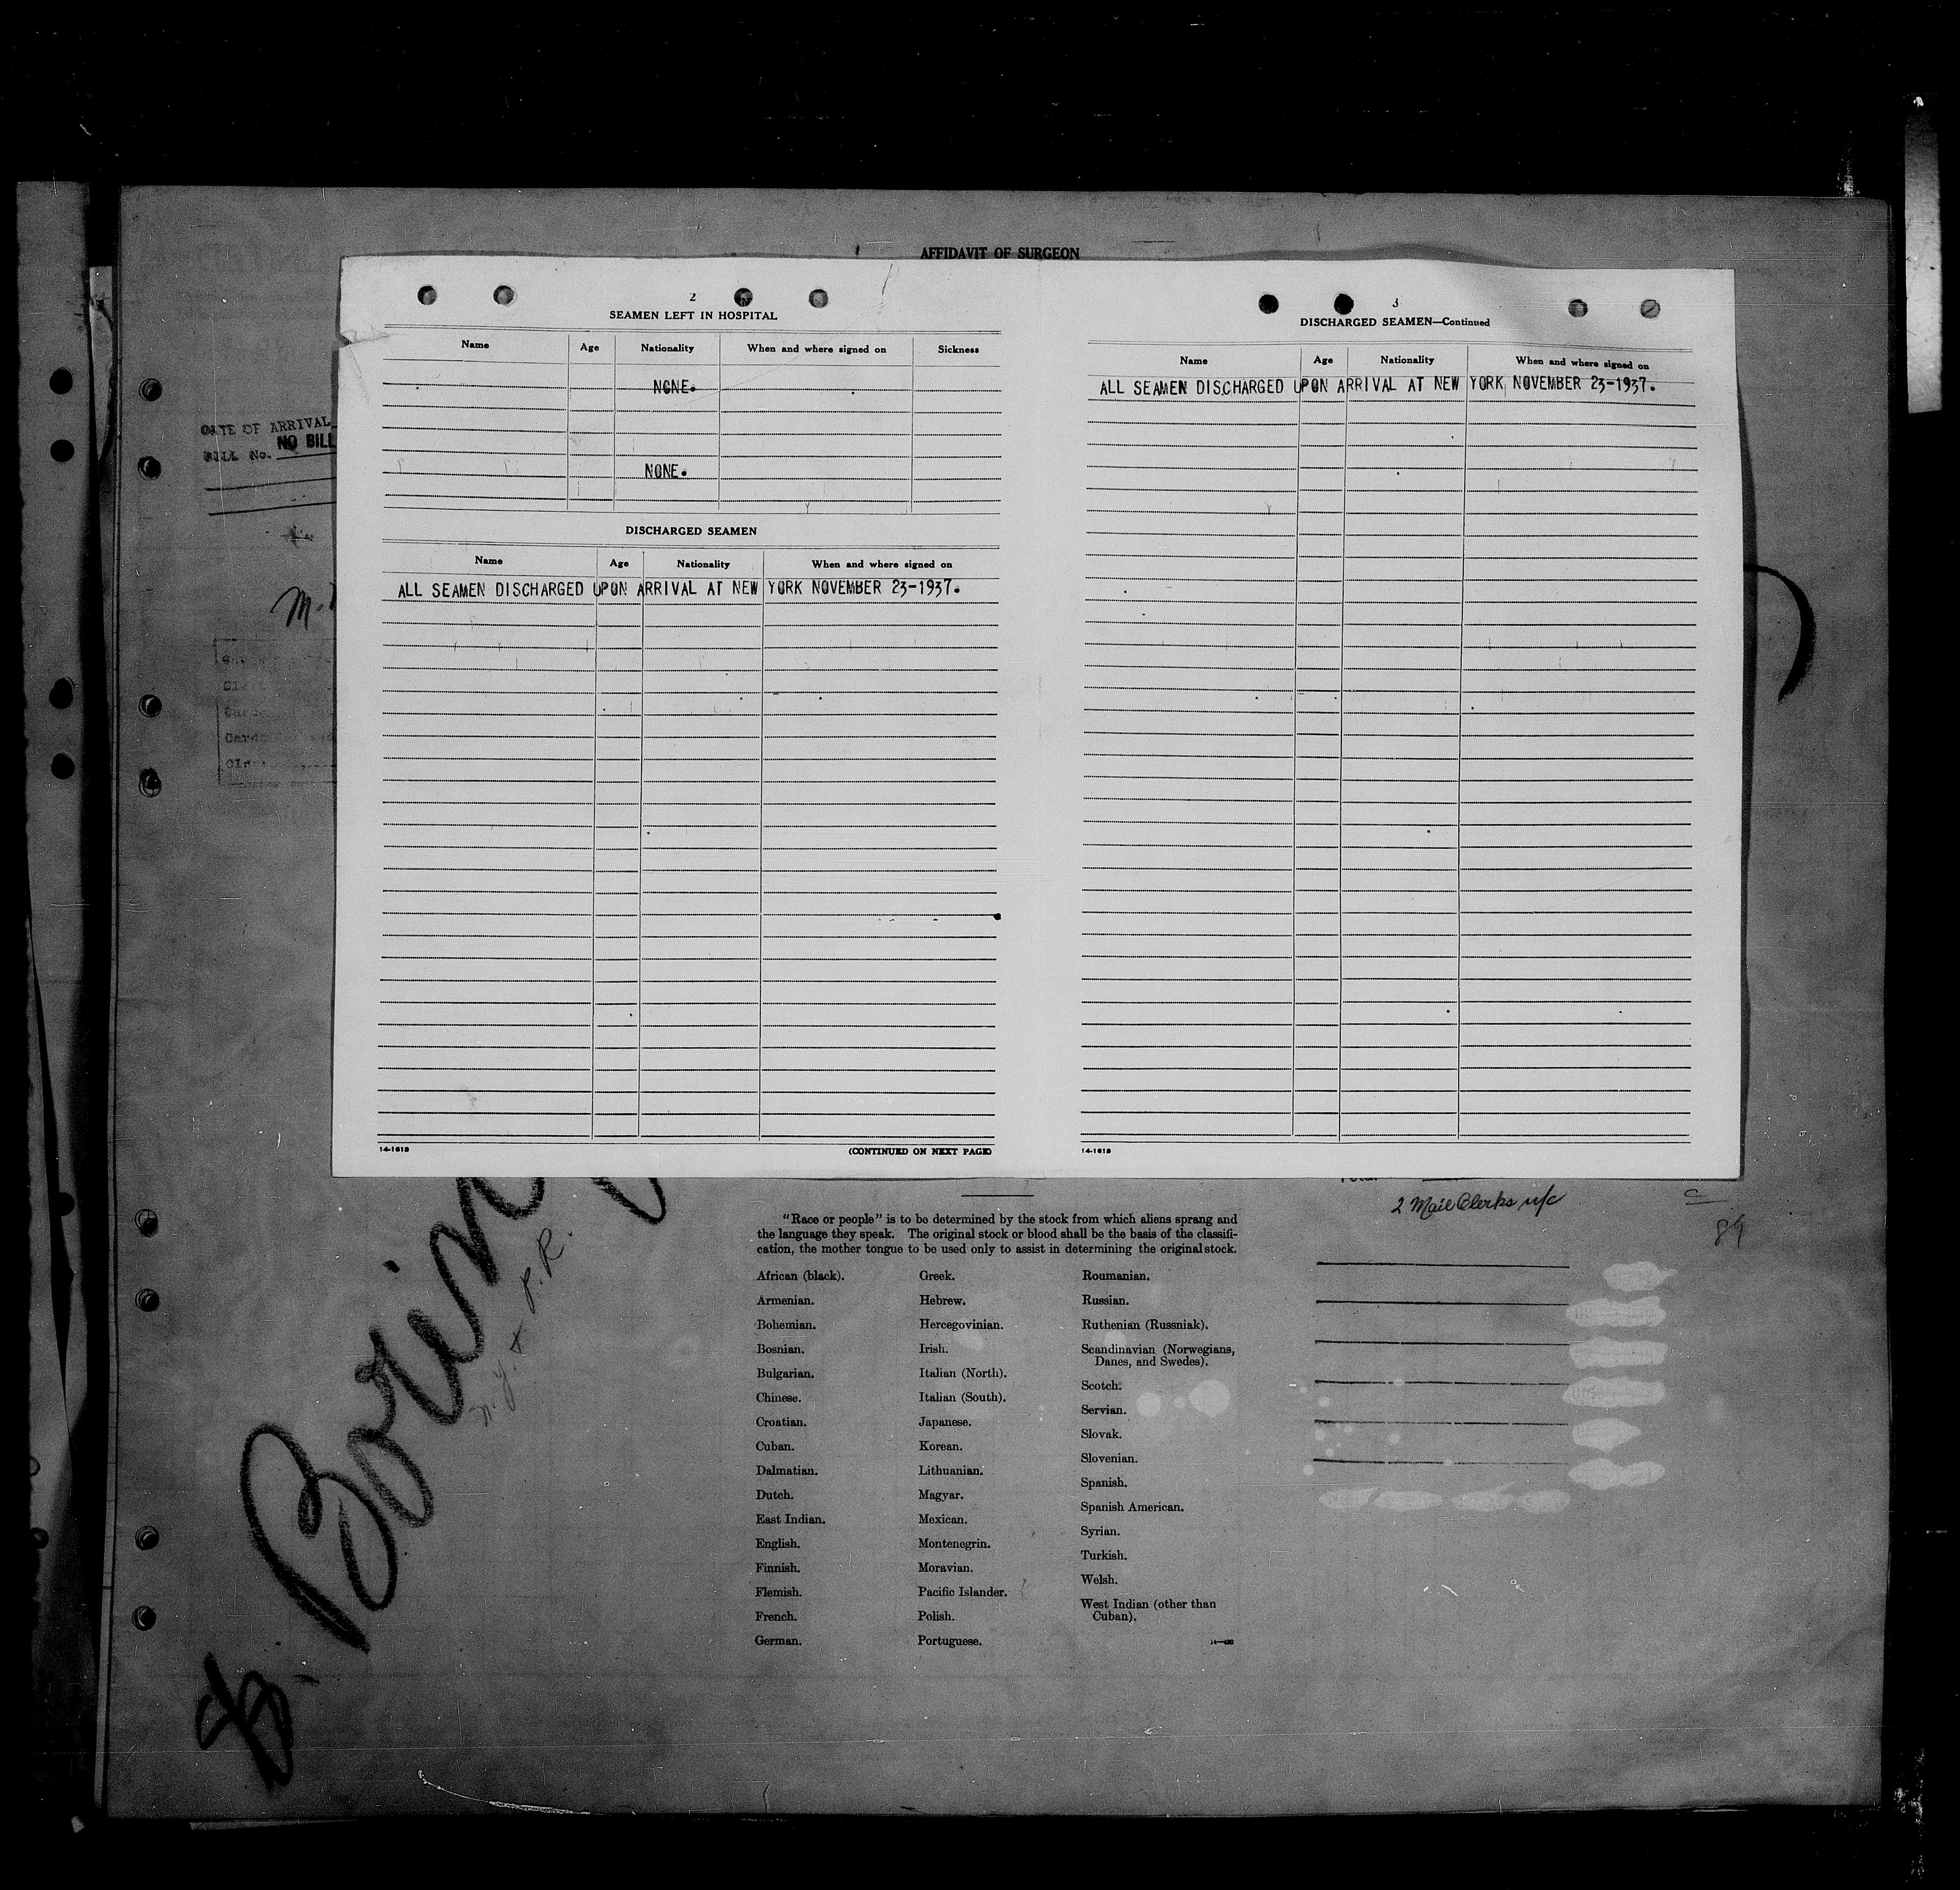 AFFIDAVIT OF SURGEON
2
SEAMEN LEFT IN HOSPITAL
Name Age Nationality When and where signed on Sickness
NONE.
NONE.
DISCHARGED SEAMEN
Name Age Nationality When and where signed on
ALL SEAMEN DISCHARGED UPON ARRIVAL AT NEW YORK NOVEMBER 23-1937.
14-1613
(CONTINUED ON NEXT PAGE)
3
DISCHARGED SEAMEN—Continued
Name Age Nationality When and where signed on
ALL SEAMEN DISCHARGED UPON ARRIVAL AT NEW YORK NOVEMBER 23-1937.
14-1613
DATE OF ARRIVAL
BILL No. NO BILL
2 Mail Clerks n/c
89
"Race or people" is to be determined by the stock from which aliens sprang and
the language they speak. The original stock or blood shall be the basis of the classifi-
cation, the mother tongue to be used only to assist in determining the original stock.
African (black).
Armenian.
Bohemian.
Bosnian.
Bulgarian.
Chinese.
Croatian.
Cuban.
Dalmatian.
Dutch.
East Indian.
English.
Finnish.
Flemish.
French.
German.
Greek.
Hebrew.
Hercegovinian.
Irish.
Italian (North).
Italian (South).
Japanese.
Korean.
Lithuanian.
Magyar.
Mexican.
Montenegrin.
Moravian.
Pacific Islander.
Polish.
Portuguese.
Roumanian.
Russian.
Ruthenian (Russniak).
Scandinavian (Norwegians,
Danes, and Swedes).
Scotch.
Servian.
Slovak.
Slovenian.
Spanish.
Spanish American.
Syrian.
Turkish.
Welsh.
West Indian (other than
Cuban).
14-430
N.Y. & P.R.